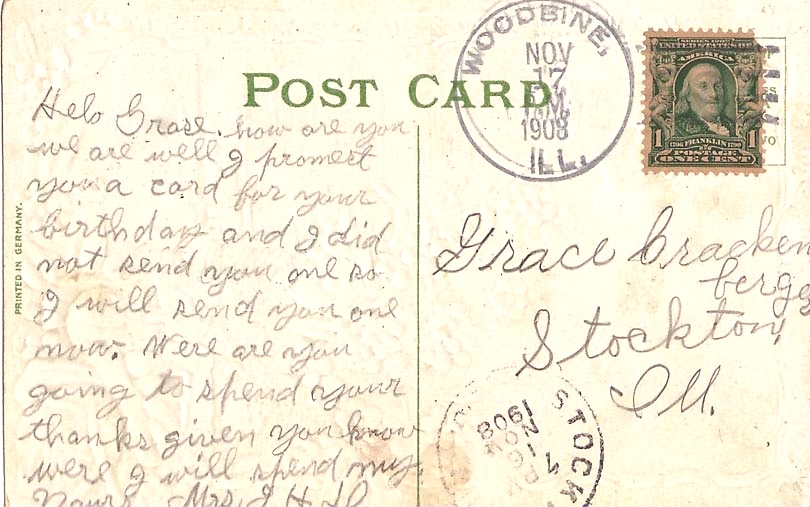 POST CARD
WOODBINE,
NOV
17
M
1908
ILL.
SERIES 1902
UNITED STATES OF
AMERICA
1 1
1706 FRANKLIN 1790
POSTAGE
ONE CENT
PRINTED IN GERMANY.
Helo Grase. how are you
we are well I promest
you a card for your
birthday and I did
not send you one so
I will send you one
now. Were are you
going to spend your
thanks given you know
were I will spend my
Yours Mrs. J H
Grace Cracken
berger
Stockton,
Ill.
STOCK
NOV
1908